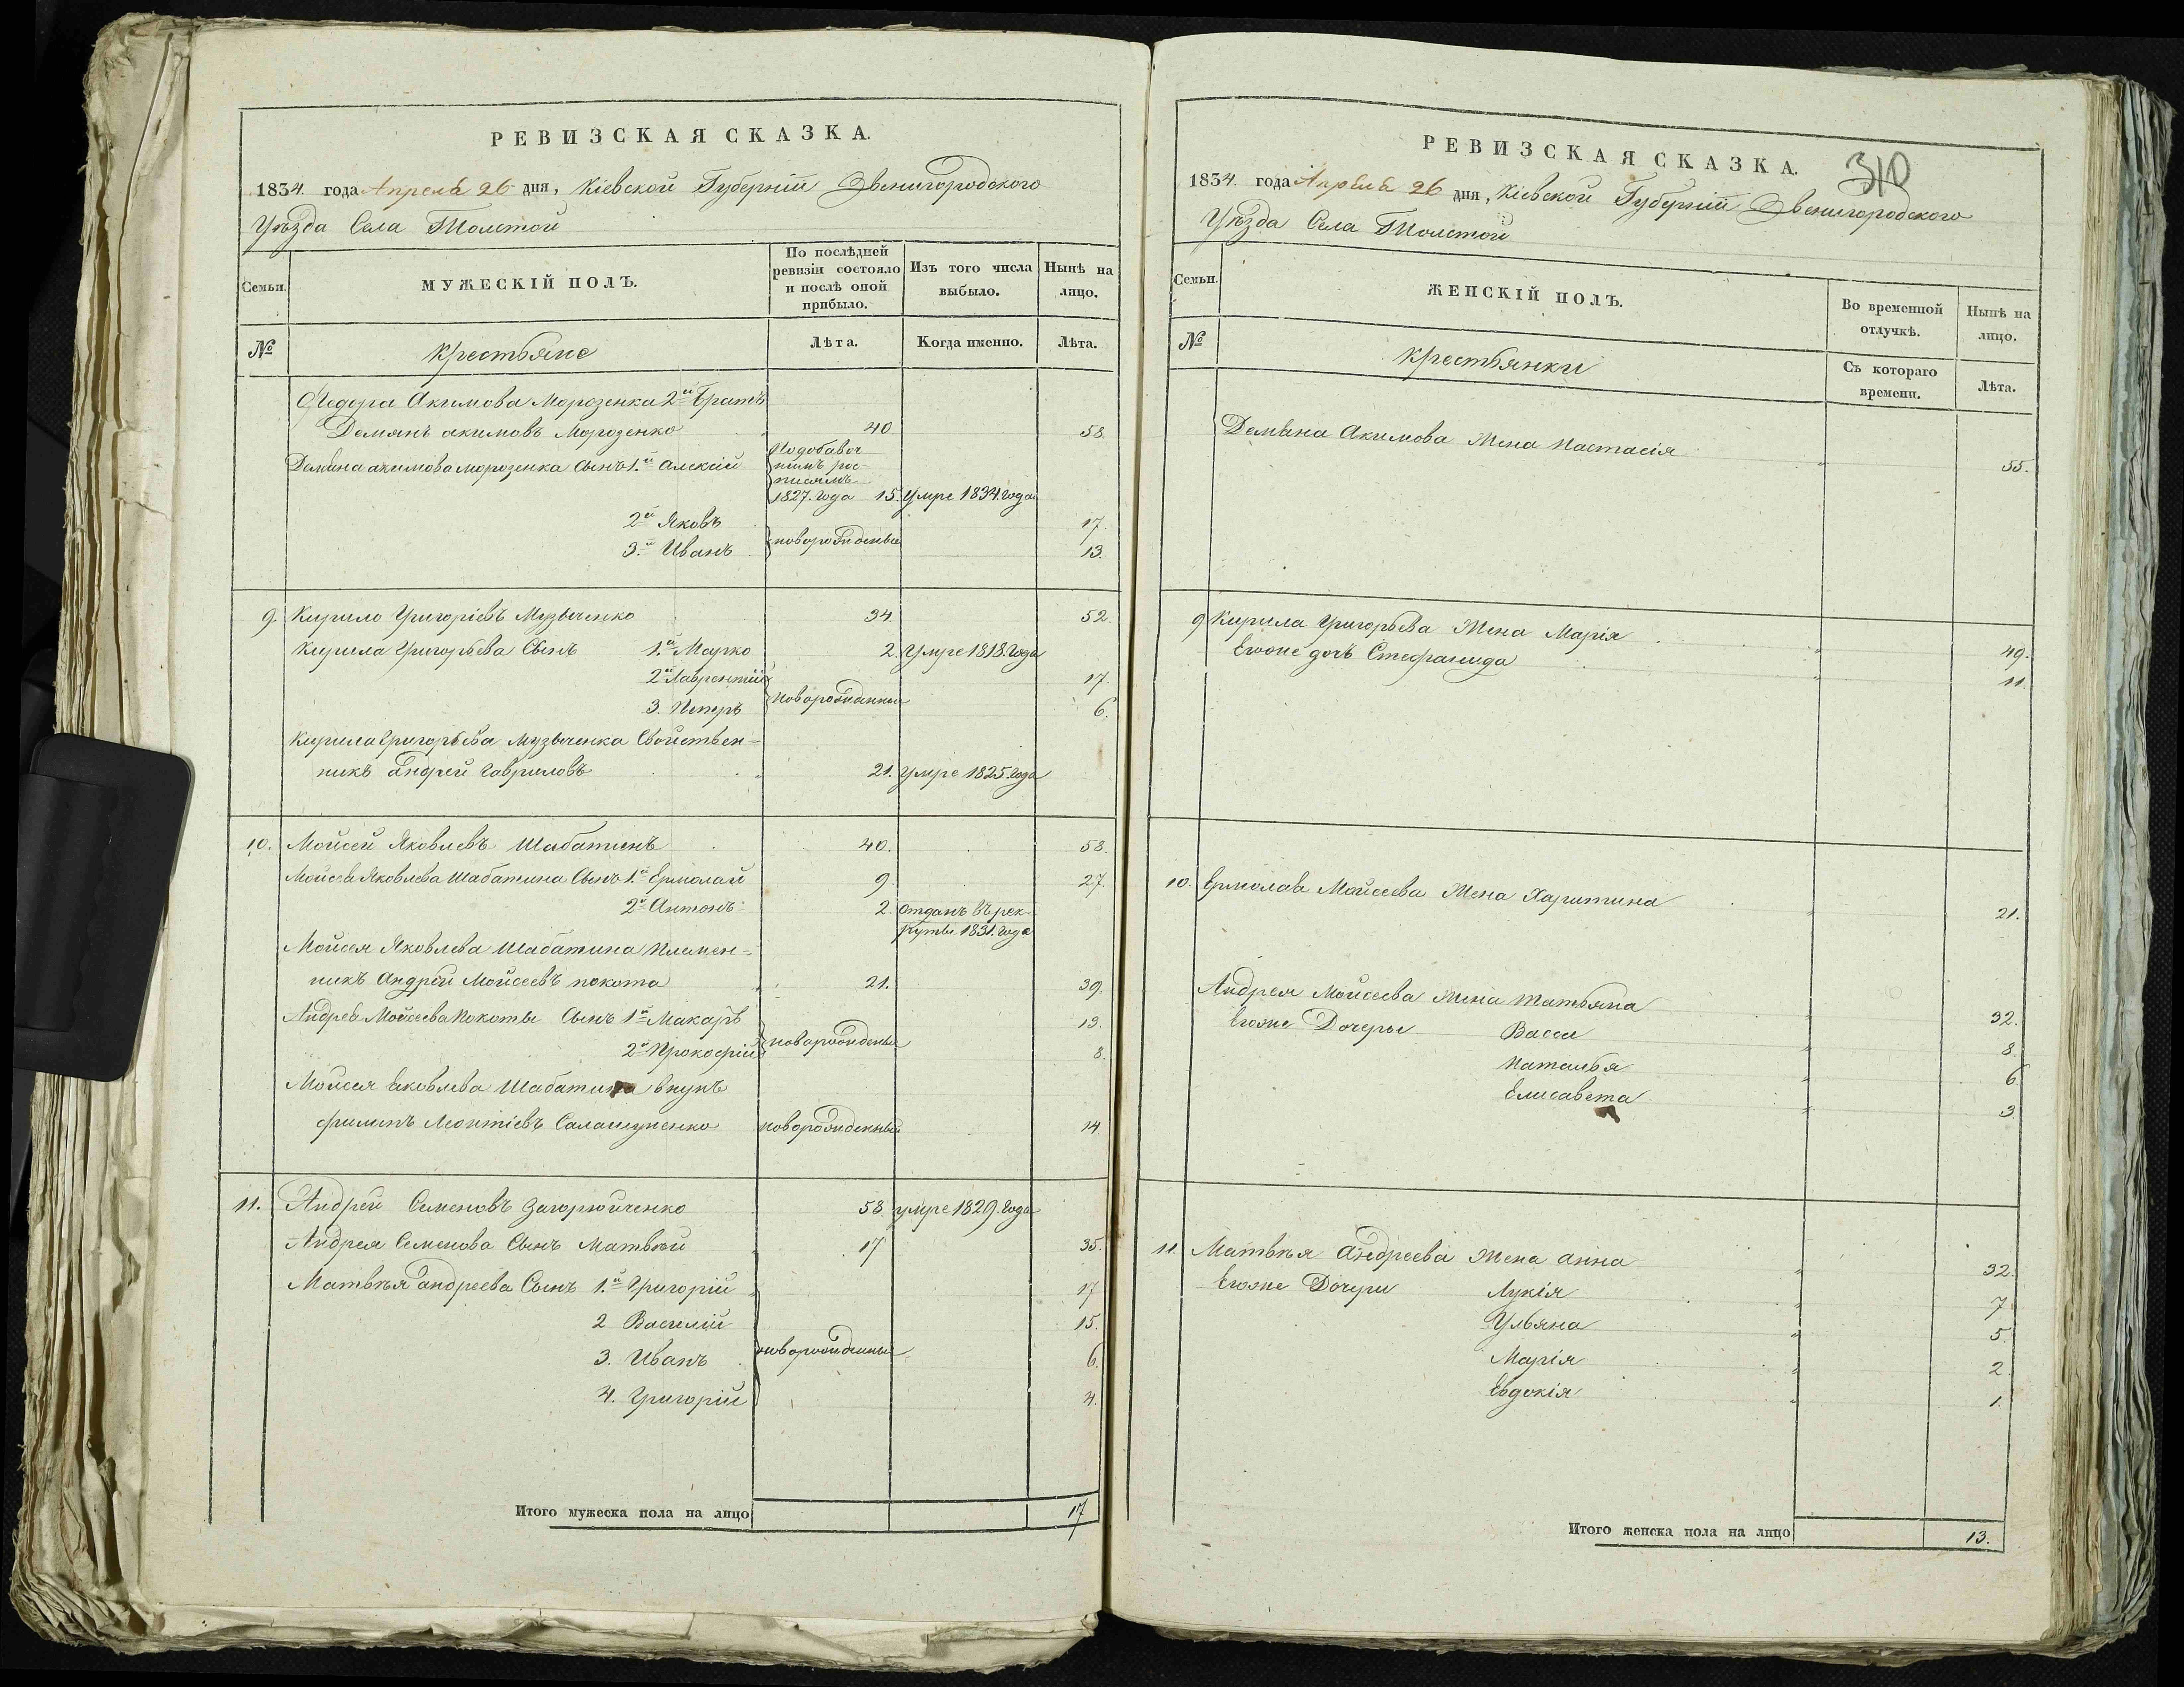 РЕВИЗСКАЯ СКАЗКА.
1834. года Апреля 26 дня, Кіевской Губерніи Звенигородского
Уѣзда Села Толстой
Семьи. МУЖЕСКІЙ ПОЛЪ. По послѣдней ревизіи состояло и послѣ оной прибыло. Изъ того числа выбыло. Нынѣ на лицо.
№ Крестьяне Лѣта. Когда именно. Лѣта.
Федора Акимова Морозенка 2й Братъ
Демянъ акимовъ Морозенко 40. 58.
Демяна акимова морозенка Сынъ 1й алексій Подобавоч
нимъ рос
писямъ
1827. года 15. Умре 1834. года
2й Яковъ 17.
новорожденые
3й Иванъ 13.
9. Кирило Григоріевъ Музыченко 34. 52.
Кирила Григорьева Сынъ 1й Марко 2. Умре 1818. года
2й Лаврентій 17.
новорожданные
3. Петръ 6.
Кирила Григорьева Музыченка Свойствен=
никъ андрей гавриловъ 21. умре 1825. года
10. Мойсей Яковлевъ Шабатинъ 40. 58.
Мойсея Яковлева Шабатина Сынъ 1й Ермолай 9. 27.
2й Антонъ 2. отданъ въ рек-
руты 1831. года
Мойсея Яковлева Шабатина Племен=
никъ Андрей Мойсеевъ покота 21. 39.
Андрея Мойсеева Покоты Сынъ 1й Макаръ 13.
новорожденые
2й Прокофій 8.
Мойсея Яковлева Шабатина внукъ
филипъ Леонтіевъ Салашупенко новорожденный 14.
11. Андрей Семеновъ Загорюйченко 58. умре 1829. года
Андрея Семенова Сынъ Матвѣй 17 35.
Матвѣя андреева Сынъ 1й Григорій 17
2 Василій 15.
новорожденные
3. Иванъ 6.
4. Григорій 4.
Итого мужеска пола на лицо 17
РЕВИЗСКАЯ СКАЗКА. 310
1834. года Апреля 26 дня, Кіевской Губерніи Звенигородского
Уѣзда Села Толстой
Семьи. ЖЕНСКІЙ ПОЛЪ. Во временной отлучкѣ. Нынѣ на лицо.
№ Крестьянки Съ котораго времени. Лѣта.
Демяна Акимова Жена Настасія 55.
9 Кирила Григорьева Жена Марія 49.
Егоже дочь Стефанида 11.
10. Ермолая Мойсеева Жена Харитина 21.
Андрея Мойсеева Жена Татьяна 32.
Егоже Дочеры Васса 8.
Наталья 6
Елисавета 3
11. Матвѣя андреева Жена анна 32.
Егоже Дочери Лукія 7
Ульяна 5
Марія 2
Евдокія 1.
Итого женска пола на лицо 13.